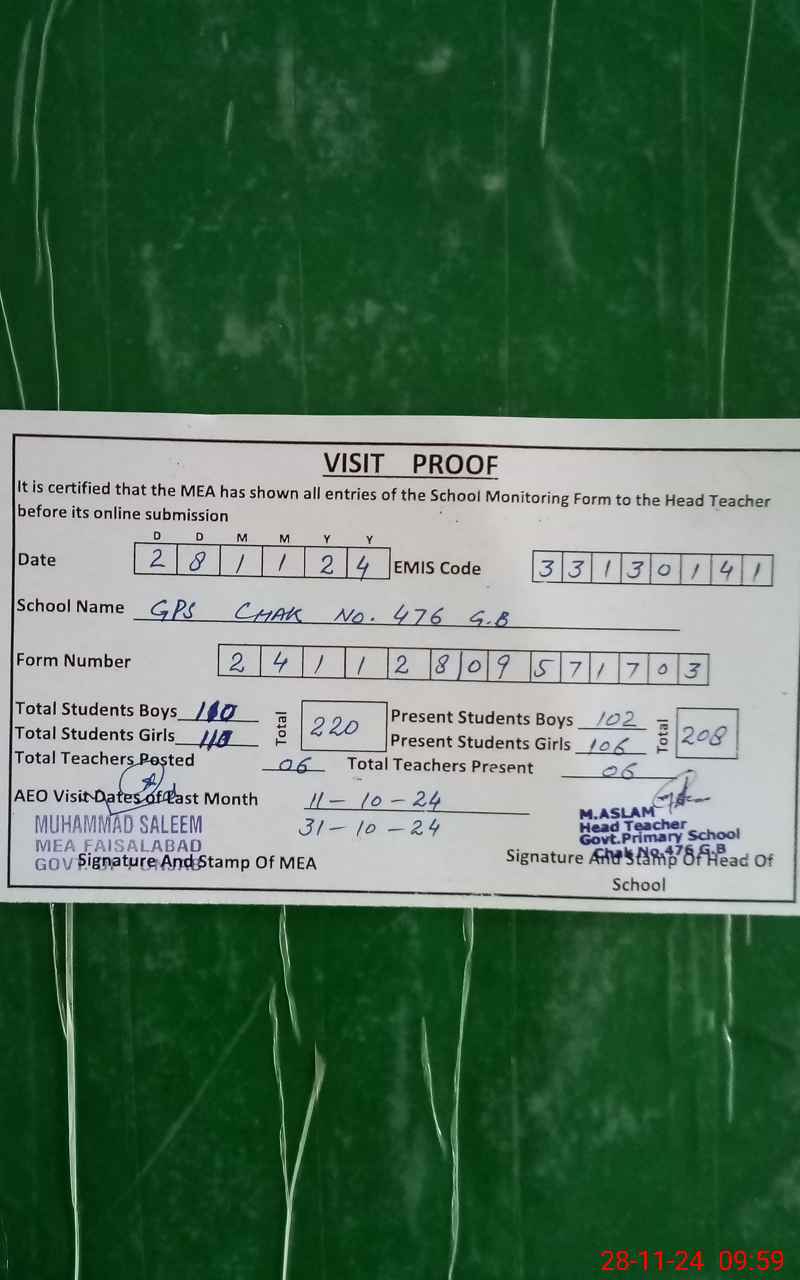 VISIT PROOF
It is certified that the MEA has shown all entries of the School Monitoring Form to the Head Teacher
before its online submission
D D M M Y Y
Date 2 8 1 1 2 4 EMIS Code 3 3 1 3 0 1 4 1
School Name GPS CHAK NO. 476 G.B
Form Number 2 4 1 1 2 8 0 9 5 7 1 7 0 3
Total Students Boys 110 Total 220 Present Students Boys 102 Total 208
Total Students Girls 110 Present Students Girls 106
Total Teachers Posted 06 Total Teachers Present 06
AEO Visit Dates of Last Month 11-10-24
31-10-24
MUHAMMAD SALEEM
MEA FAISALABAD
GOVT. OF PUNJAB
Signature And Stamp Of MEA
M.ASLAM
Head Teacher
Govt.Primary School
Chak No.476 G.B
Signature And Stamp Of Head Of
School
28-11-24 09:59